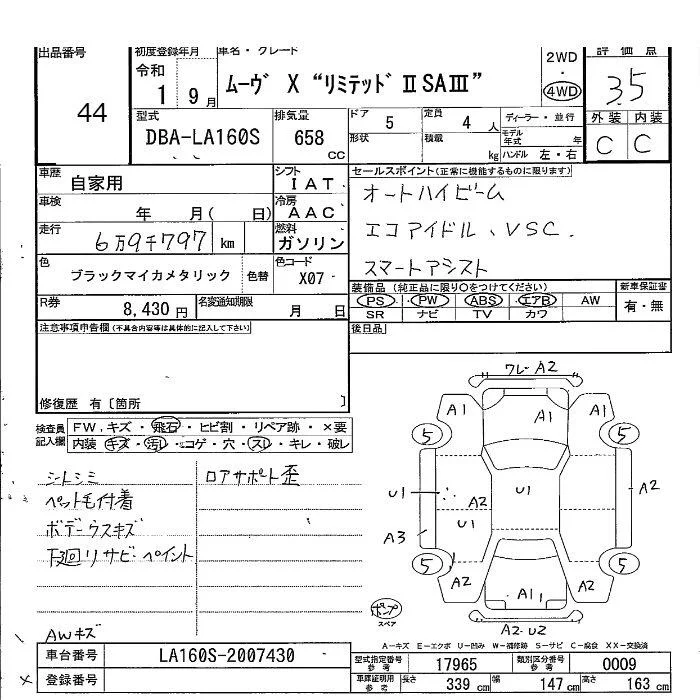 出品番号
44
初度登録年月
令和
1 9月
車名・グレード
ムーヴ X “リミテッド ⅡSAⅢ”
2WD
・
4WD
評価点
3.5
外装 内装
C C
型式
DBA-LA160S
排気量
658
CC
ドア 5
形状
定員 4 人
積載 kg
ディーラー・並行
モデル年式 年
ハンドル 左・右
車歴 自家用
シフト IAT
車検 年 月( 日)
冷房 AAC
走行 6万9千797 km
燃料 ガソリン
色 ブラックマイカメタリック 色替
色コード X07
R券 8,430円
名変通知期限 月 日
セールスポイント(正常に機能するものに限ります)
オートハイビーム
エコアイドル、VSC.
スマートアシスト
装備品 (純正品に限り○をつけてください)
新車保証書
PS PW ABS エアB AW
有・無
SR ナビ TV カワ
後日品
注意事項申告欄(不具合内容等は具体的に記入して下さい)
修復歴 有〔箇所 〕
検査員記入欄
FW,キズ・飛石・ヒビ割・リペア跡・×要
内装 キズ・汚れ・コゲ・穴・スレ・キレ・破レ
シトシミ
ペット毛付着
ボデーウスキズ
下廻リサビ・ペイント
AWキズ
ロアサポート歪
ワレ-A2
A1 A1
5 5
U1 A2 U1 A2
A3 U1
5 5
A2 A11 A2
A2 U2
ボンプ
スペア
A-キズ E-エクボ U-凹み W-補修跡 S-サビ C-腐食 XX-交換済
車台番号 LA160S-2007430
登録番号
型式指定番号 参考 17965
類別区分番号 参考 0009
車庫証明用 参考 長さ 339 cm 幅 147 cm 高さ 163 cm